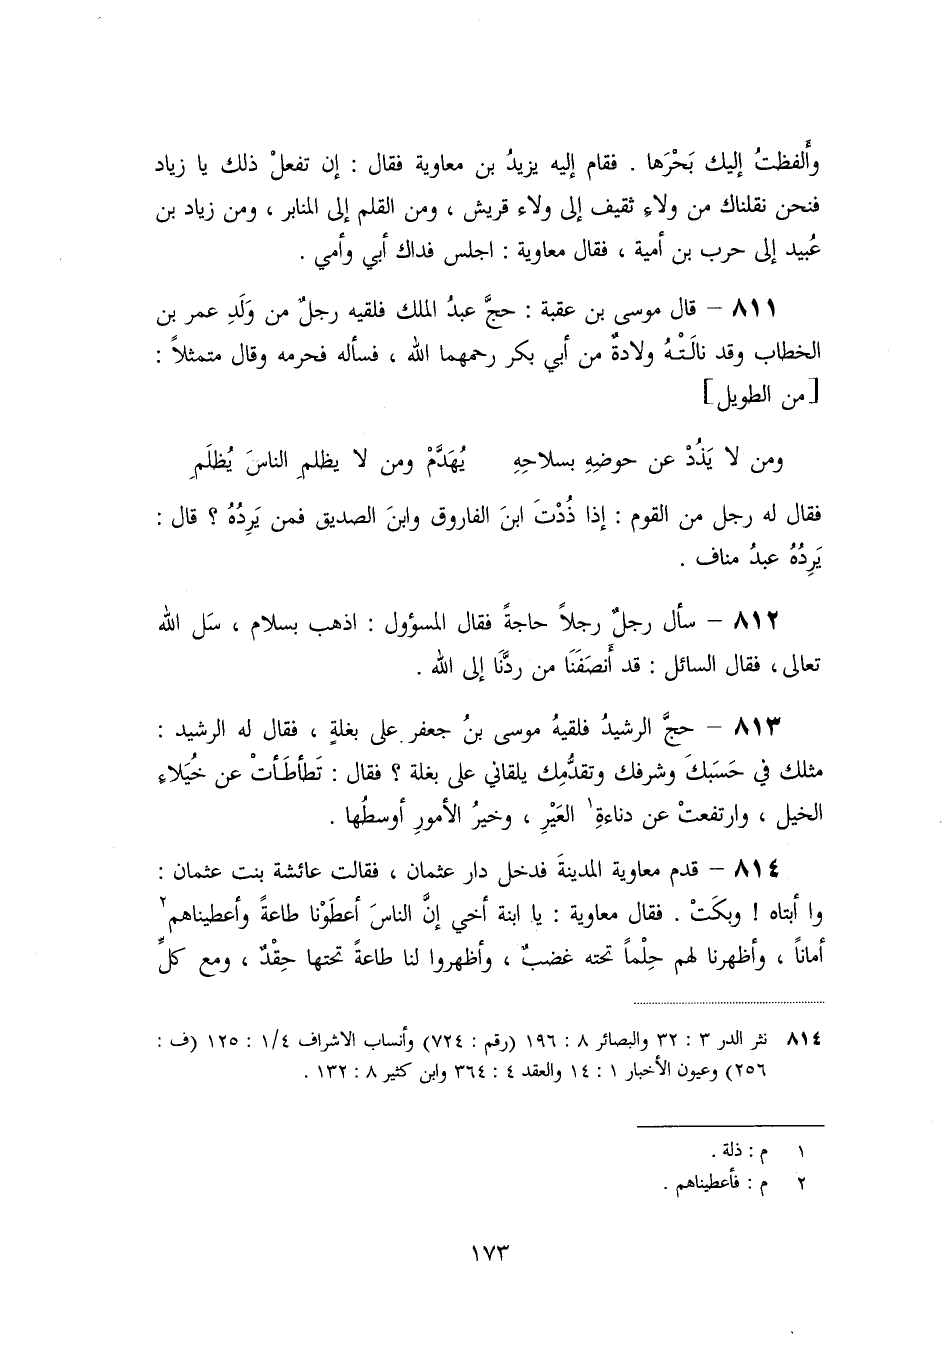 وأَلفظتُ إليك بَحْرَها . فقام إليه يزيدُ بن معاوية فقال : إن تفعلْ ذلك يا زياد
فنحن نقلناك من ولاءِ ثقيف إلى ولاء قريش ، ومن القلم إلى المنابر ، ومن زياد بن
عُبيد إلى حرب بن أمية ، فقال معاوية : اجلس فداك أبي وأمي .
٨١١ – قال موسى بن عقبة : حجَّ عبدُ الملك فلقيه رجلٌ من وَلَدِ عمر بن
الخطاب وقد نالَتْهُ ولادةٌ من أبي بكر رحمهما الله ، فسأله فحرمه وقال متمثلاً :
[من الطويل]
ومن لا يَذُدْ عن حوضِهِ بسلاحِهِ يُهَدَّمْ ومن لا يظلمِ الناسَ يُظلَمِ
فقال له رجل من القوم : إذا ذُدْتَ ابنَ الفاروق وابنَ الصديق فمن يَرِدُهُ ؟ قال :
يَرِدُهُ عبدُ مناف .
٨١٢ – سأل رجلٌ رجلاً حاجةً فقال المسؤول : اذهب بسلام ، سَل الله
تعالى ، فقال السائل : قد أَنصَفَنَا من ردَّنَا إلى الله .
٨١٣ – حجَّ الرشيدُ فلقيهُ موسى بنُ جعفر على بغلةٍ ، فقال له الرشيد :
مثلك في حَسَبكَ وشرفك وتقدُّمِك يلقاني على بغلة ؟ فقال : تَطأطَأتْ عن خُيَلاءِ
الخيل ، وارتفعتْ عن دناءةِ١ العَيْرِ ، وخيرُ الأمورِ أوسطُها .
٨١٤ – قدم معاوية المدينةَ فدخل دار عثمان ، فقالت عائشة بنت عثمان :
وا أبتاه ! وبكَتْ . فقال معاوية : يا ابنة أخي إنَّ الناسَ أعطَوْنا طاعةً وأعطيناهم٢
أماناً ، وأظهرنا لهم حِلْماً تحته غضبٌ ، وأظهروا لنا طاعةً تحتها حِقْدٌ ، ومع كلِّ
٨١٤ نثر الدر ٣ : ٣٢ والبصائر ٨ : ١٩٦ (رقم : ٧٢٤) وأنساب الاشراف ١/٤ : ١٢٥ (ف :
٢٥٦) وعيون الأخبار ١ : ١٤ والعقد ٤ : ٣٦٤ وابن كثير ٨ : ١٣٢ .
١ م : ذلة .
٢ م : فأعطيناهم .
١٧٣